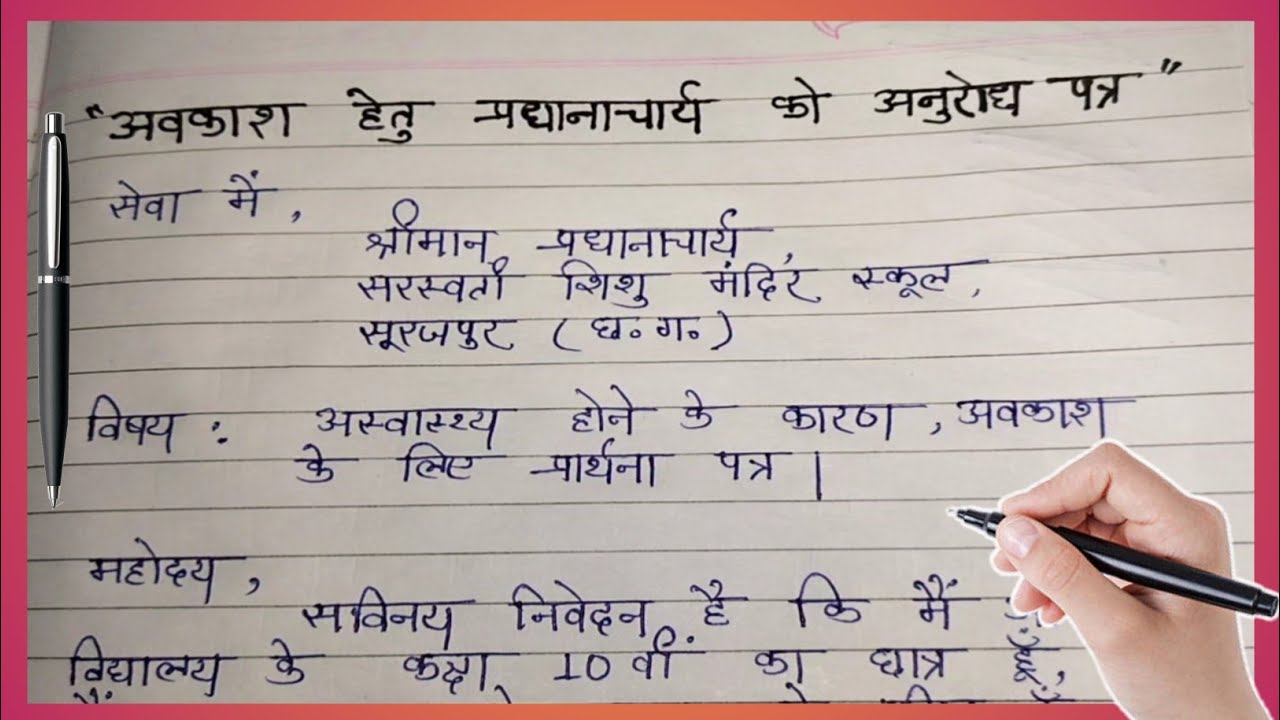 "अवकाश हेतु प्रधानाचार्य को अनुरोध पत्र"
सेवा में,
श्रीमान प्रधानाचार्य,
सरस्वती शिशु मंदिर स्कूल,
सूरजपुर (छ.ग.)
विषय : अस्वास्थ्य होने के कारण, अवकाश
के लिए प्रार्थना पत्र।
महोदय,
सविनय निवेदन है कि मैं
विद्यालय के कक्षा 10 वीं का छात्र हूँ,